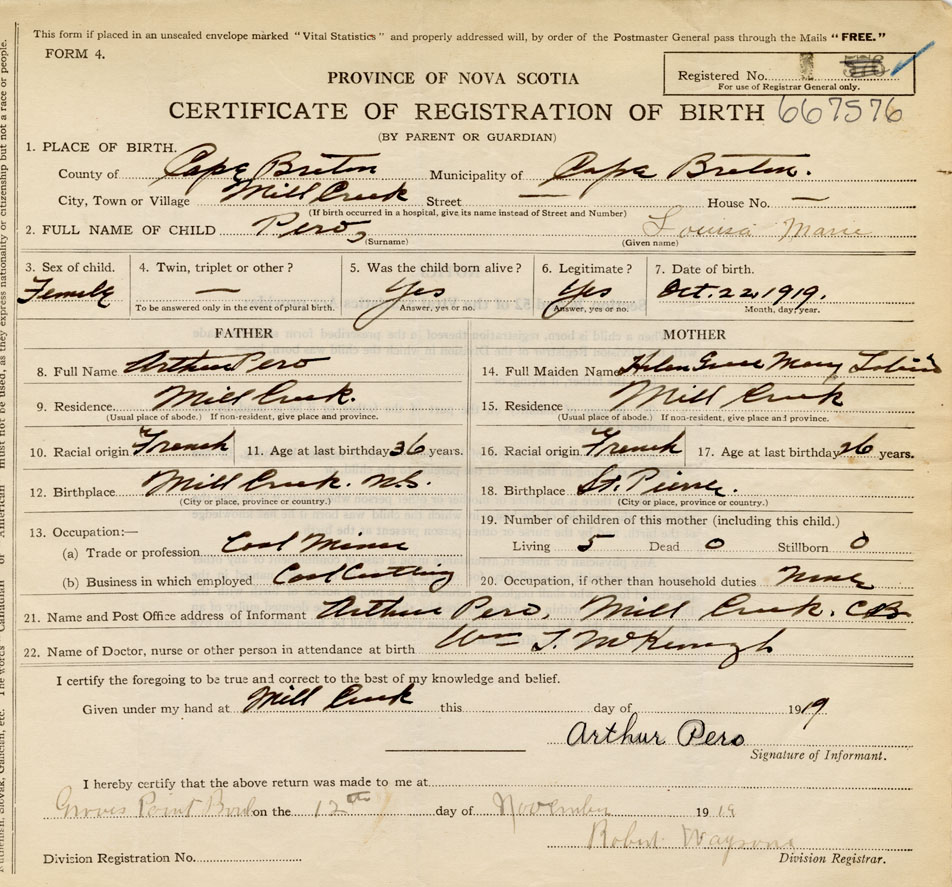 This form if placed in an unsealed envelope marked "Vital Statistics" and properly addressed will, by order of the Postmaster General pass through the Mails "FREE."
FORM 4.
Registered No.
For use of Registrar General only.
PROVINCE OF NOVA SCOTIA
CERTIFICATE OF REGISTRATION OF BIRTH 667576
(BY PARENT OR GUARDIAN)
1. PLACE OF BIRTH.
County of Cape Breton Municipality of Cape Breton.
City, Town or Village Mill Creek Street — House No. —
(If birth occurred in a hospital, give its name instead of Street and Number)
2. FULL NAME OF CHILD Pero, Louisa Marie
(Surname) (Given name)
3. Sex of child. 4. Twin, triplet or other? 5. Was the child born alive? 6. Legitimate? 7. Date of birth.
Female — Yes Yes Oct. 22 1919.
To be answered only in the event of plural birth. Answer, yes or no. Answer, yes or no. Month, day, year.
FATHER MOTHER
8. Full Name Arthur Pero 14. Full Maiden Name Helen Grace Mary
9. Residence Mill Creek. 15. Residence Mill Creek
(Usual place of abode.) If non-resident, give place and province. (Usual place of abode.) If non-resident, give place and province.
10. Racial origin French 11. Age at last birthday 36 years. 16. Racial origin French 17. Age at last birthday 26 years.
12. Birthplace Mill Creek. N.S. 18. Birthplace St. Pierre.
(City or place, province or country.) (City or place, province or country.)
13. Occupation:— 19. Number of children of this mother (including this child.)
(a) Trade or profession Coal Miner Living 5 Dead 0 Stillborn 0
(b) Business in which employed Coal Cutting 20. Occupation, if other than household duties None
21. Name and Post Office address of Informant Arthur Pero, Mill Creek. C.B.
22. Name of Doctor, nurse or other person in attendance at birth Wm J. McKeough
I certify the foregoing to be true and correct to the best of my knowledge and belief.
Given under my hand at Mill Creek this day of 1919
Arthur Pero
Signature of Informant.
I hereby certify that the above return was made to me at
Groves Point on the 12th day of November 1919
Robert
Division Registration No. Division Registrar.